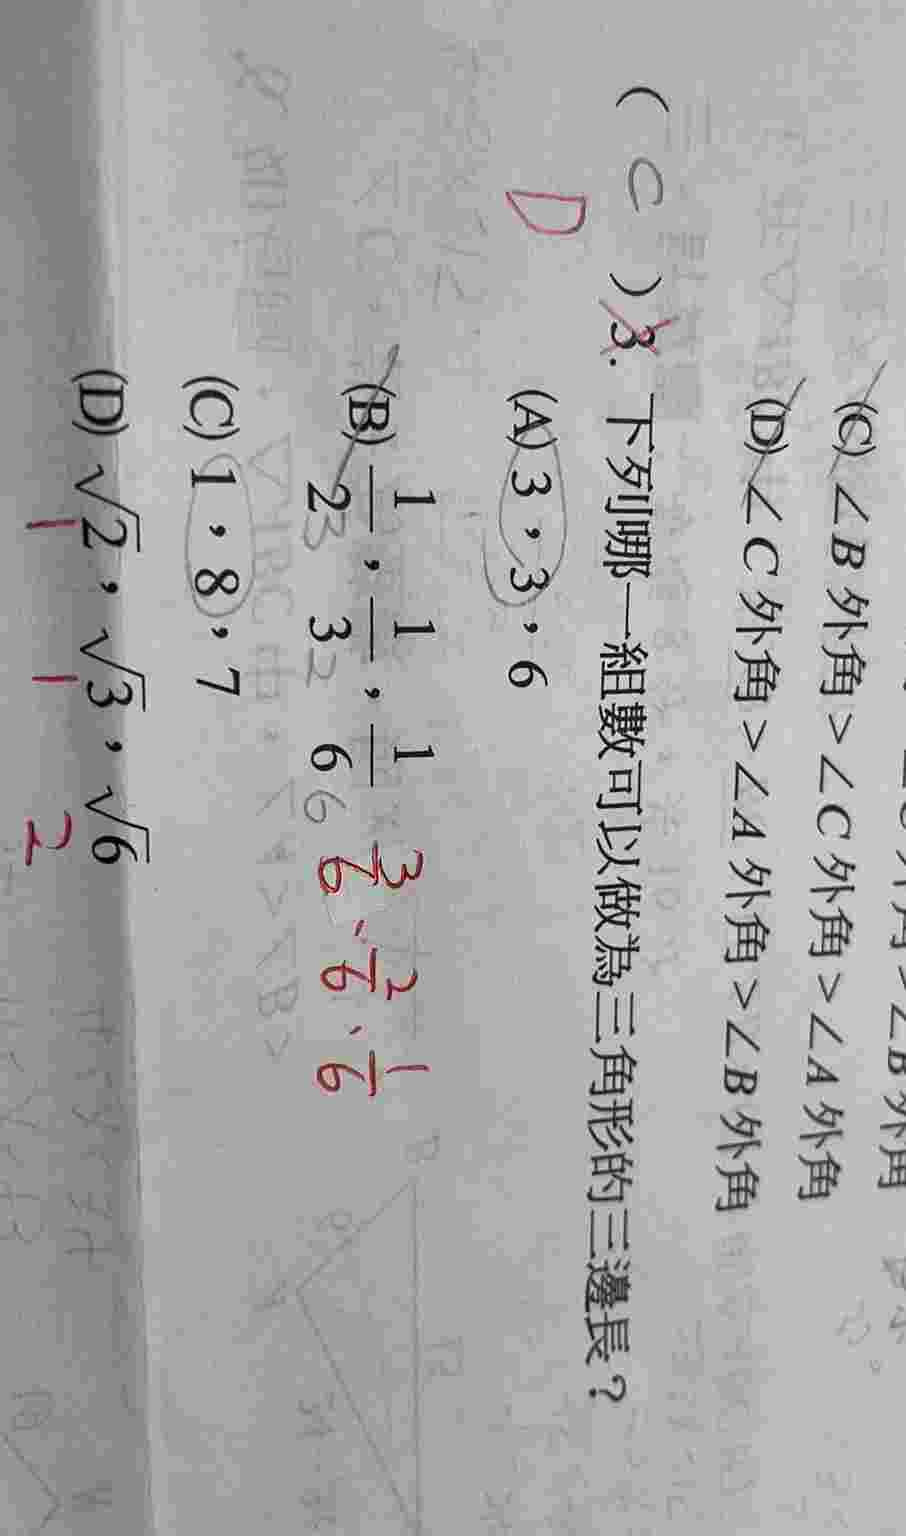 ∠B外角
(C) ∠B外角>∠C外角>∠A外角
(D) ∠C外角>∠A外角>∠B外角
( C )3. 下列哪一組數可以做為三角形的三邊長？
D
(A) 3，3，6
(B) 1/2，1/3，1/6 3/6、2/6、1/6
3 2 6
(C) 1，8，7
(D) √2，√3，√6
1 1 2